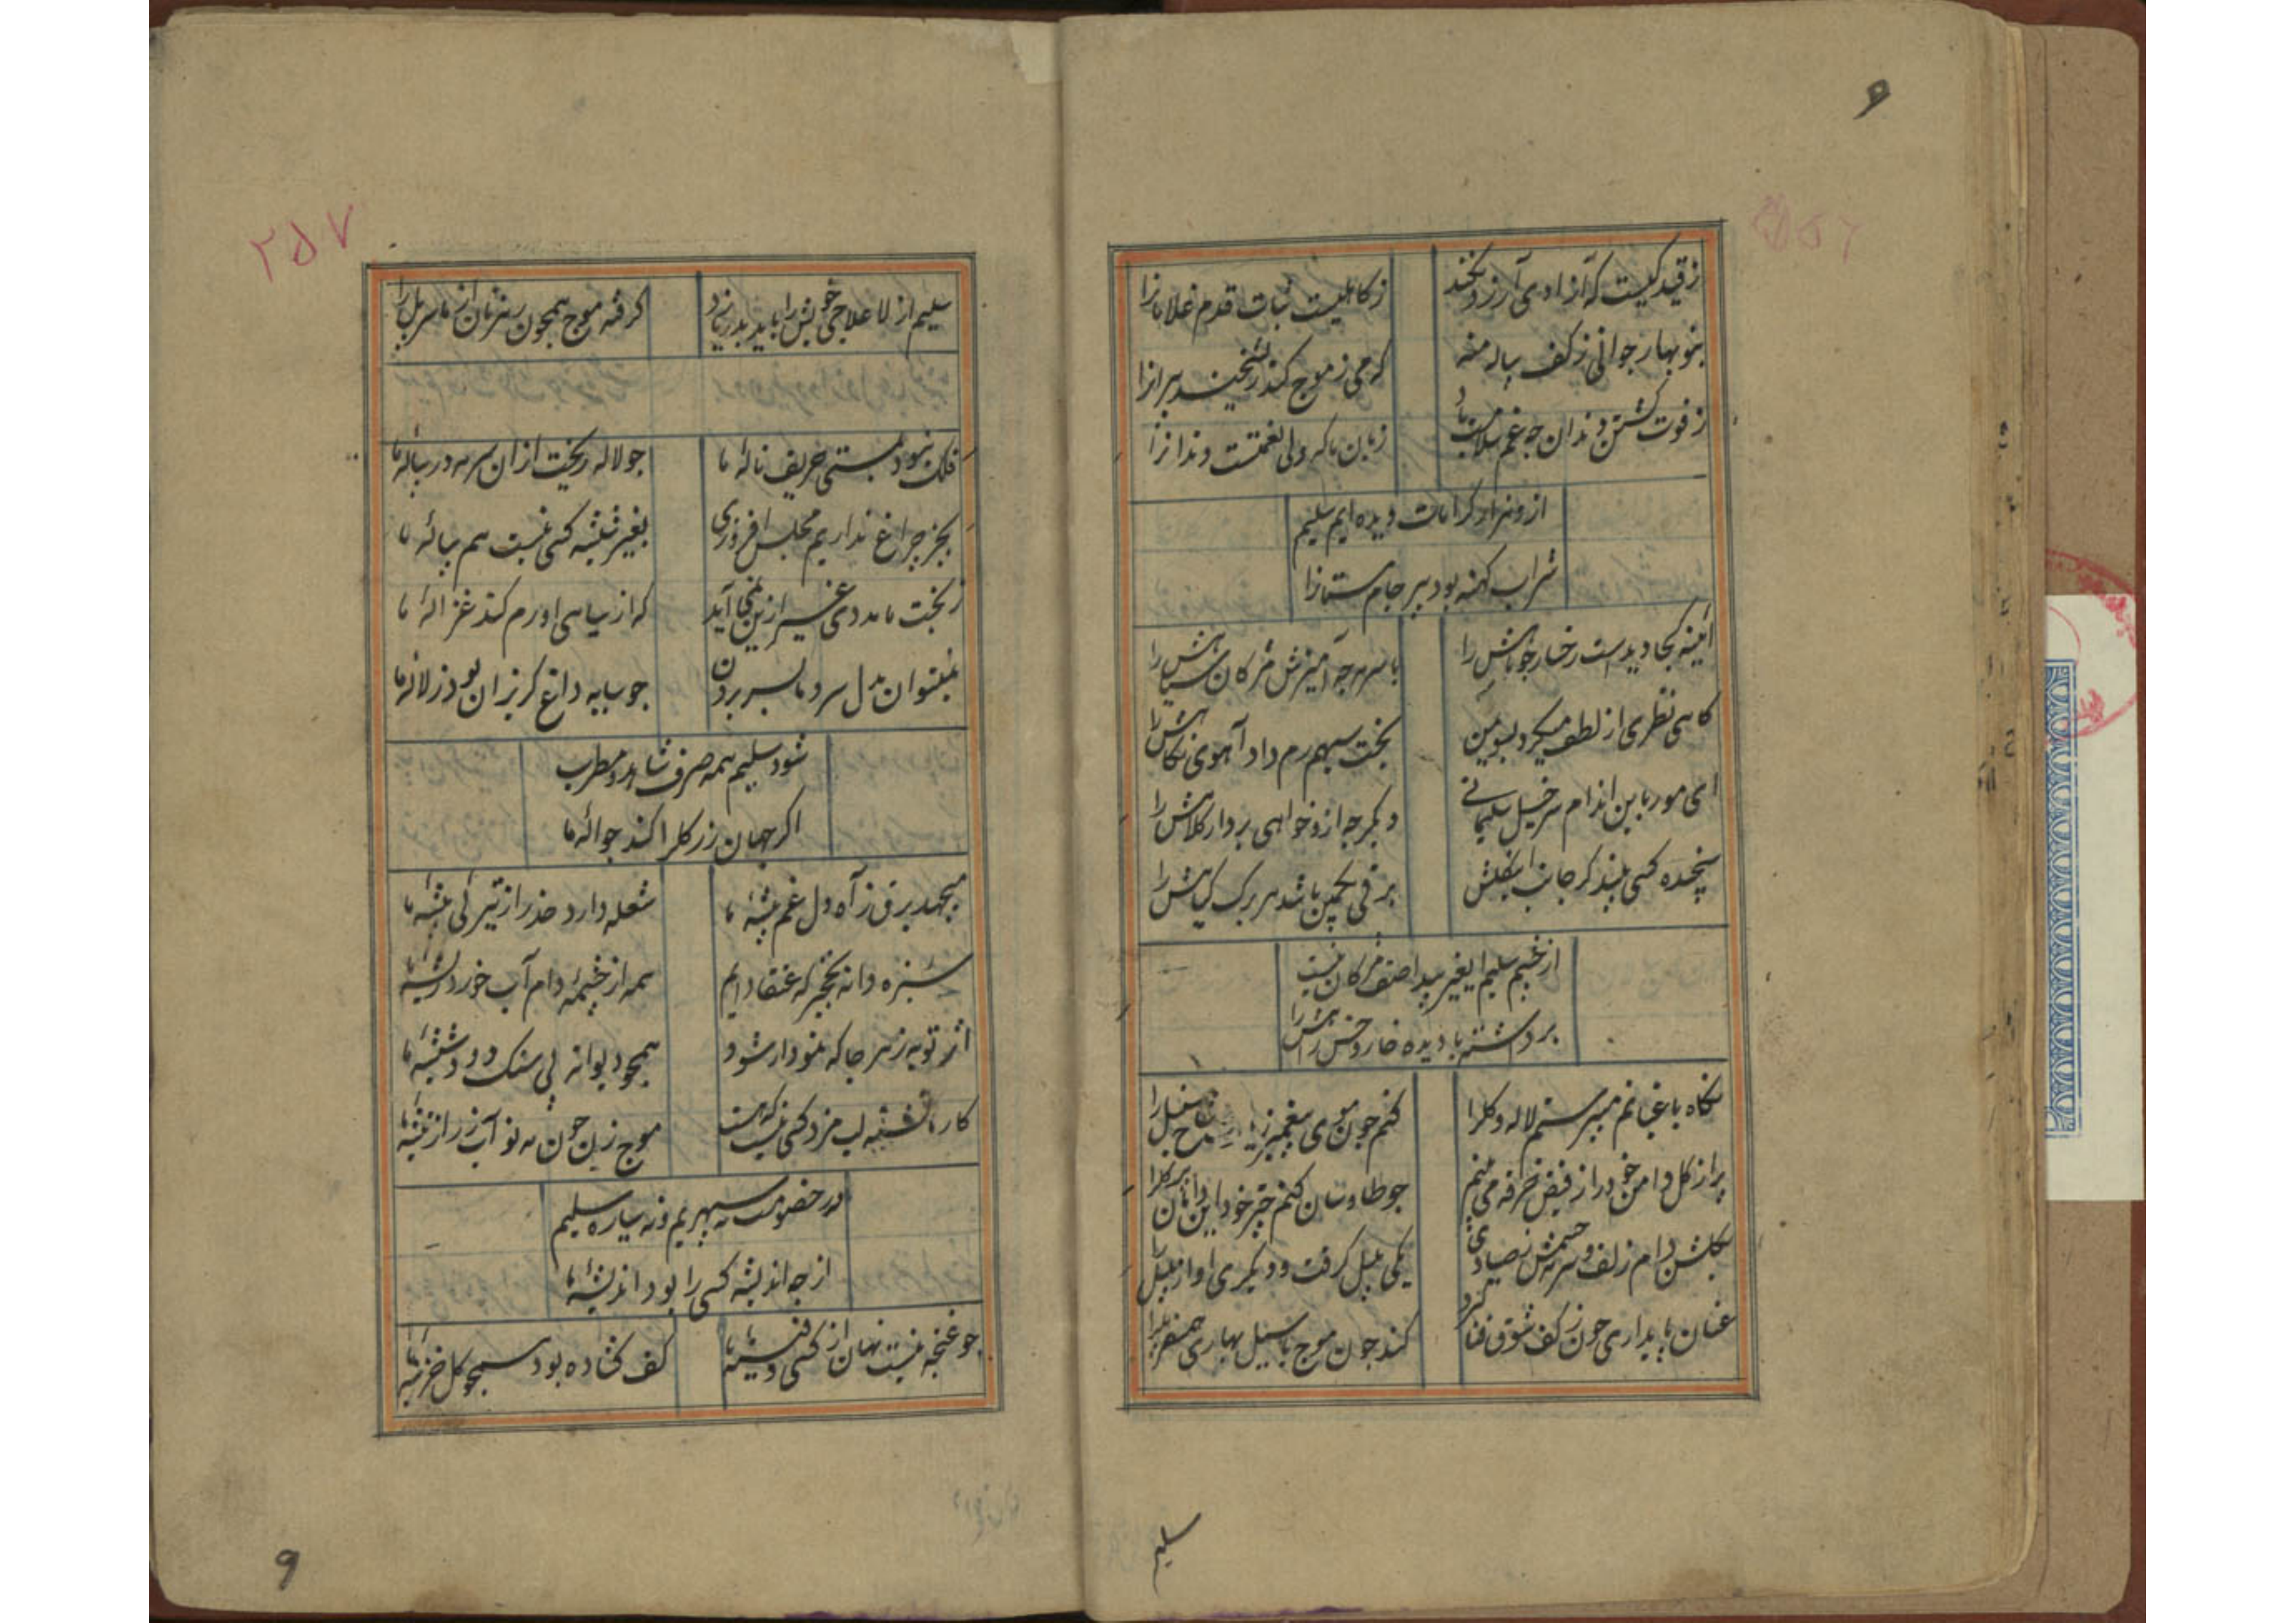 ۹
ز قید کیست که آزادی آرزو نکند
ز کاهلیست ثبات قدم غلامانرا
بنوبهار جوانی ز کف پیاله منه
که می ز موج کند ریشخند پیرانرا
ز فوت گشتن دندان چه غم سلامت باد
زبان که ولی نعمتست دندانرا
از و هزار کرامات دیده ایم سلیم
شراب کهنه بود پیر جام مستانرا
آئینه کجا دیدست رخسار چو ماهش را
با سرمه چه آمیزش مژکان سیاهش را
کاهی نظری از لطف میکرد بسوی من
بخت سیهم رم داد آهوی نکاهش را
ای مور باین اندام سرخیل سلیمانی
دیکر چه ازو خواهی بردار کلاهش را
کسی بیند کر جانب
برقی بچمن باشد هر برک کیاهش را
از چشم سلیم ایغیر پیدا صف مژکان نیست
برداشته با دیده خار و خس راهش را
نکاه باغبانم میپرستم لاله و کلرا
کنم چون موی سنبل را
پر از کل دامن خود را ز فیض خرقه می بینم
چو طاوسان کنم چتر خود این دامان پر کلرا
بکلشن دام زلف و سرمه چشمش ز صیادی
یکی بلبل کرفت و دیکری آواز بلبل را
عنان پایداری چون ز کف شوق فنا کیرد
کند چون موج با سیل بهاری همسفر پل را
سلیم
۲۵۷
سلیم از لا علاجی خویش را باید بدریا زد
کرفته موج همچون رهزنان از ما سر پل را
فلک نبود بمستی حریف نالهٔ ما
چو لاله ریخت ازان سرمه در پیالهٔ ما
بجز چراغ نداریم مجلس افروزی
بغیر شیشه کسی نیست هم پیالهٔ ما
ز بخت ما مددی غیر ازین نمی آید
که از سیاهی او رم کند غزالهٔ ما
نمیتوان بدل سرد ما بسر بردن
چو سایه داغ کریزان بود ز لالهٔ ما
شود سلیم همه صرف شاهد و مطرب
اکر جهان زر کلرا کند حوالهٔ ما
میجهد برق ز آه دل غم پیشهٔ ما
شعله دارد حذر از تیرکی بیشهٔ ما
سبزه دانه نخجیرکه عنقاایم
همه از چشمهٔ دام آب خورد ریشهٔ ما
اثر توبه ز هر جا که نمودار شود
همچو دیوانه پی سنک دود شیشهٔ ما
کار ما تشنه لب مزد کسی نیست که هست
موج زن چون مه نو آب زر از تیشهٔ ما
در خصومت نه سپهریم و نه سیاره سلیم
از چه اندیشه کسی را بود اندیشهٔ ما
چو غنچه نیست نهان از کسی دفینهٔ ما
کف کشاده بود همچو کل خزینهٔ ما
9